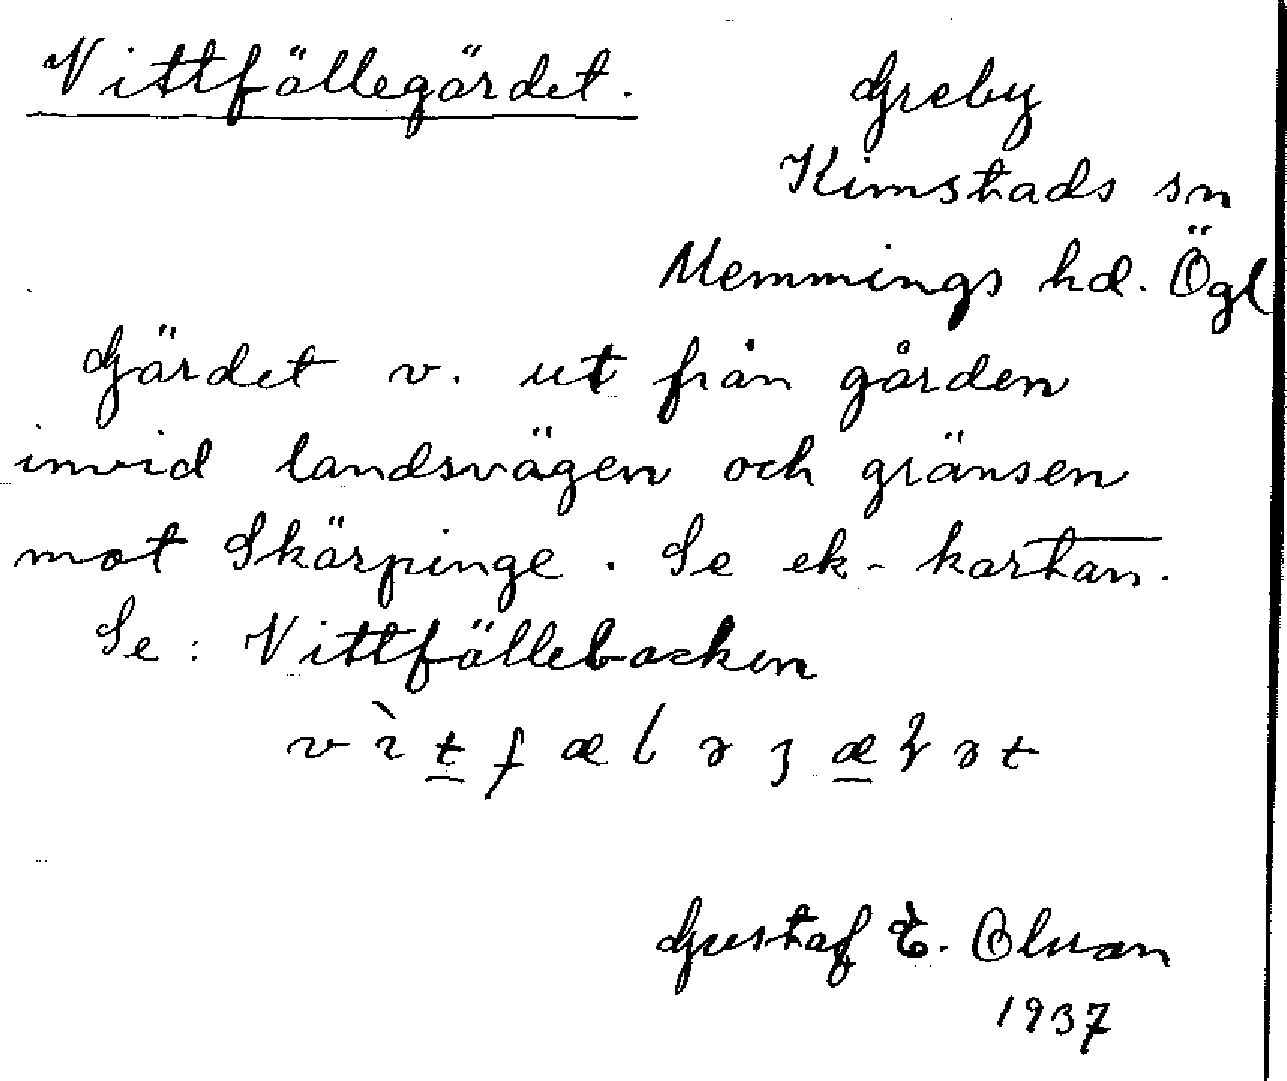 Vittfällegärdet.
Greby
Kimstads sn
Memmings hd. Ögl
Gärdet v. ut från gården
invid landsvägen och gränsen
mot Skärpinge. Se ek-kartan.
Se: Vittfällebacken
Gustaf E.
1937